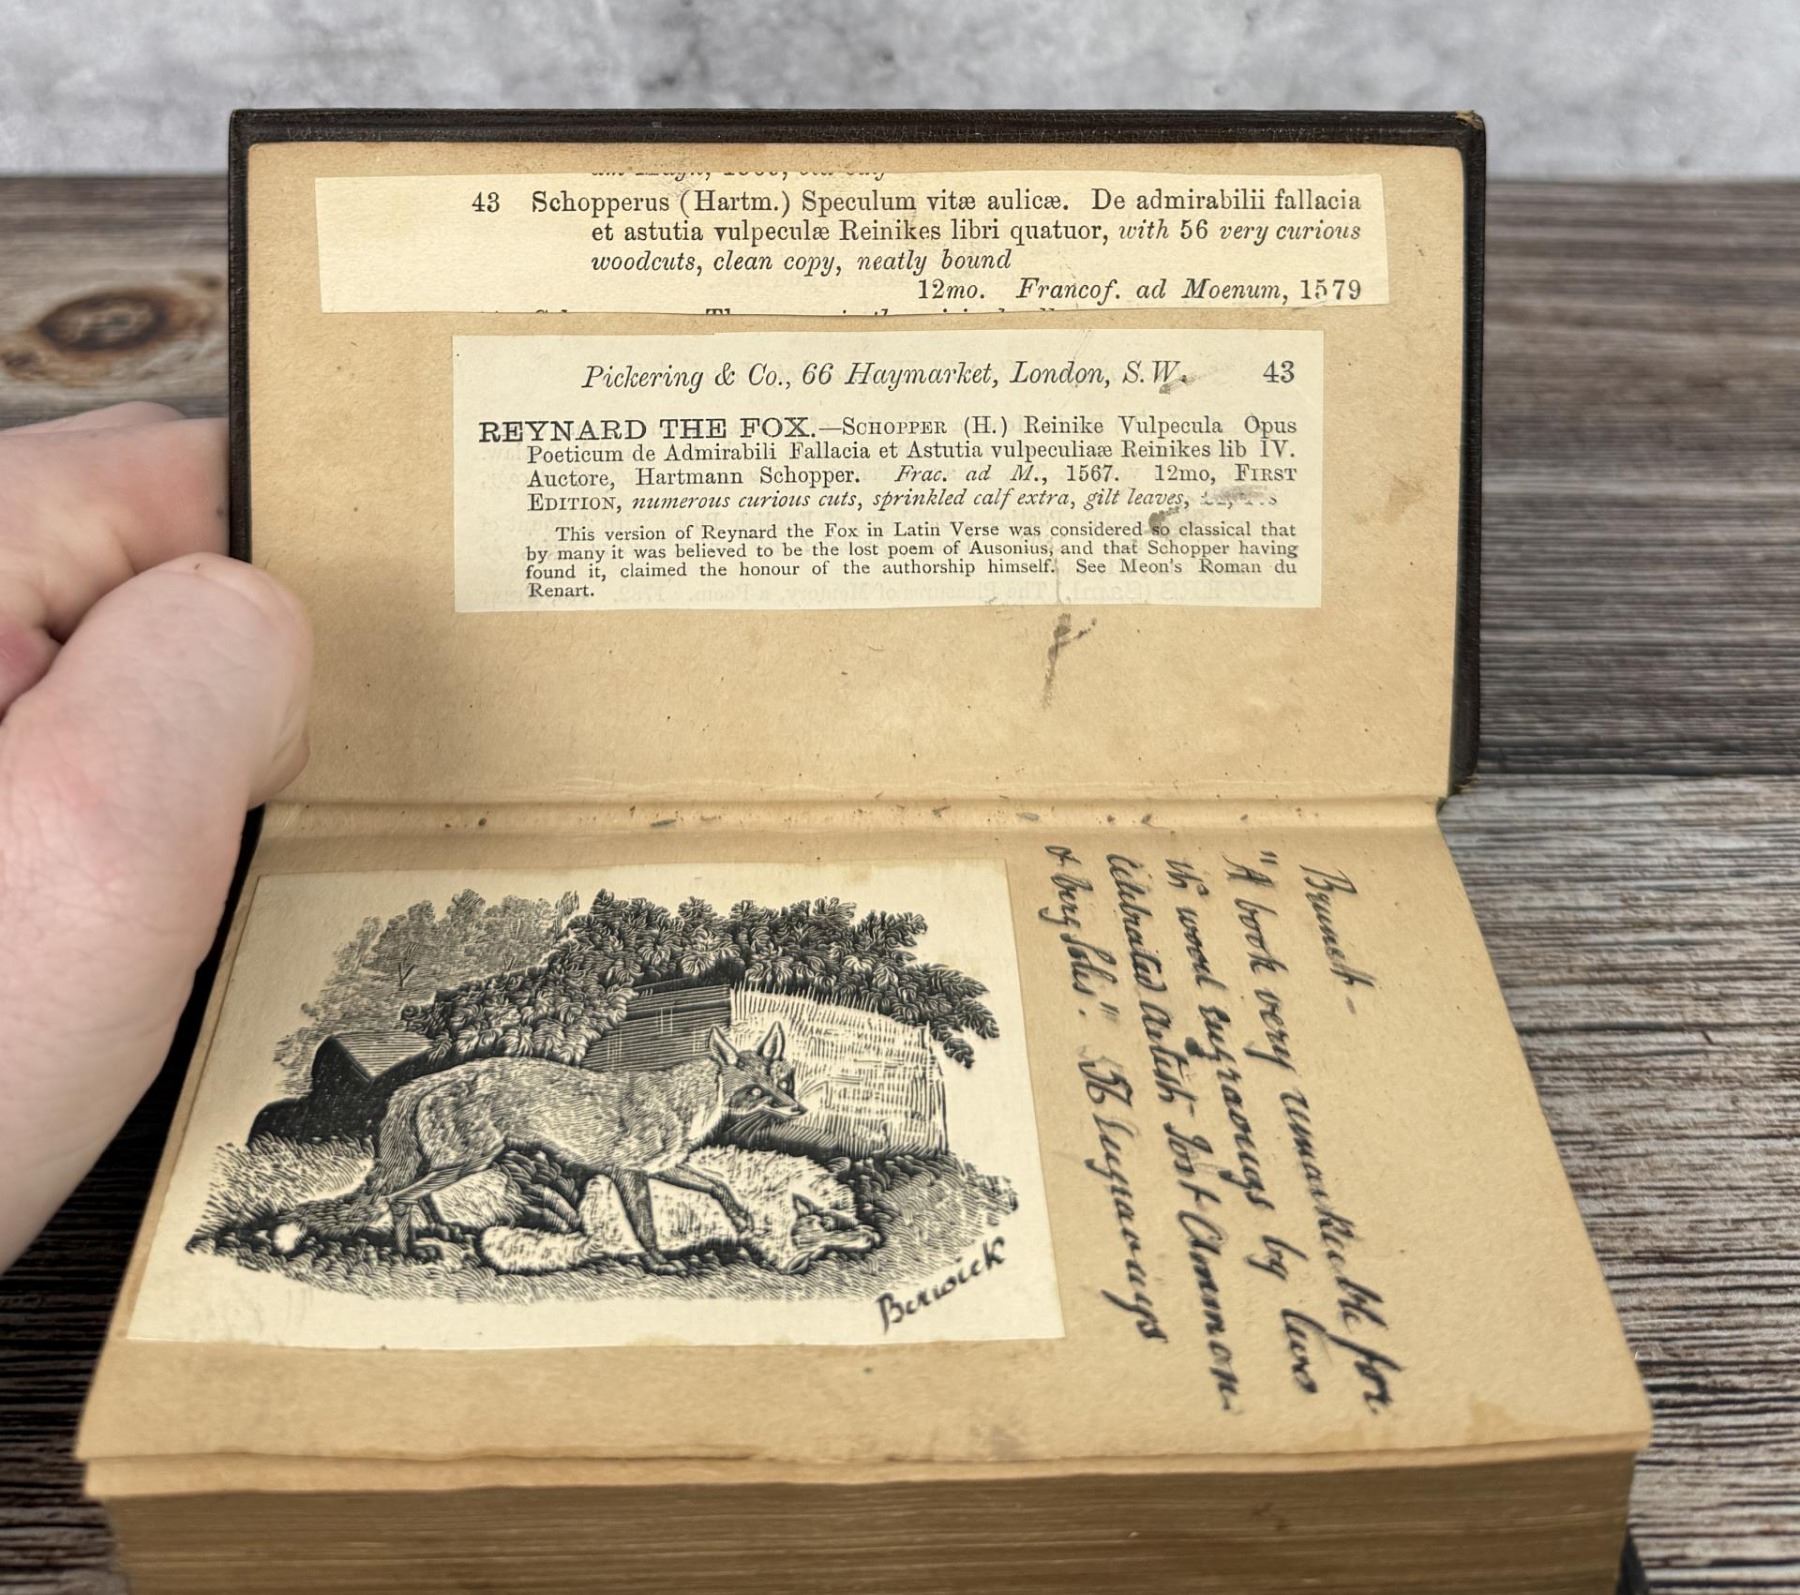 43 Schopperus (Hartm.) Speculum vitæ aulicæ. De admirabilii fallacia
et astutia vulpeculæ Reinikes libri quatuor, with 56 very curious
woodcuts, clean copy, neatly bound
12mo. Francof. ad Moenum, 1579
Pickering & Co., 66 Haymarket, London, S.W. 43
REYNARD THE FOX.—SCHOPPER (H.) Reinike Vulpecula Opus
Poeticum de Admirabili Fallacia et Astutia vulpeculiaæ Reinikes lib IV.
Auctore, Hartmann Schopper. Frac. ad M., 1567. 12mo, FIRST
EDITION, numerous curious cuts, sprinkled calf extra, gilt leaves,
This version of Reynard the Fox in Latin Verse was considered so classical that
by many it was believed to be the lost poem of Ausonius, and that Schopper having
found it, claimed the honour of the authorship himself. See Meon's Roman du
Renart.
Brunet -
"A book very remarkable for
its wood engravings by two
celebrated artists Jost Ammon
& Virg Solis."
Engravings
Berwick